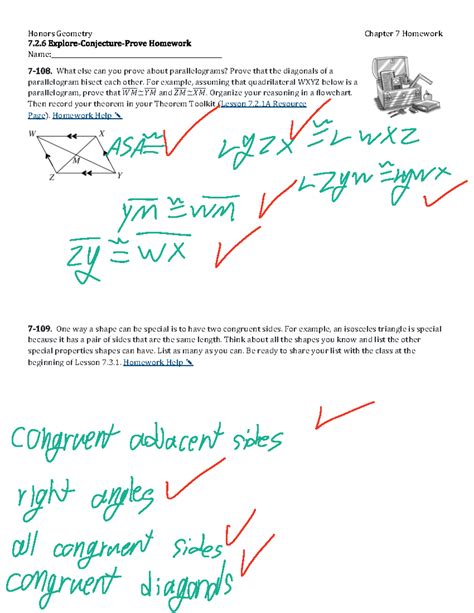 Honors Geometry Chapter 7 Homework
7.2.6 Explore-Conjecture-Prove Homework
Name:
7-108. What else can you prove about parallelograms? Prove that the diagonals of a
parallelogram bisect each other. For example, assuming that quadrilateral WXYZ below is a
parallelogram, prove that WM≅YM and ZM≅XM. Organize your reasoning in a flowchart.
Then record your theorem in your Theorem Toolkit (Lesson 7.2.1A Resource
Page). Homework Help
W X
M
Z Y
ASA≅
∠YZX≅∠WXZ
∠ZYW≅∠YWX
YM≅WM
ZY≅WX
7-109. One way a shape can be special is to have two congruent sides. For example, an isosceles triangle is special
because it has a pair of sides that are the same length. Think about all the shapes you know and list the other
special properties shapes can have. List as many as you can. Be ready to share your list with the class at the
beginning of Lesson 7.3.1. Homework Help
congruent adjacent sides
right angles
all congruent sides
congruent diagonals